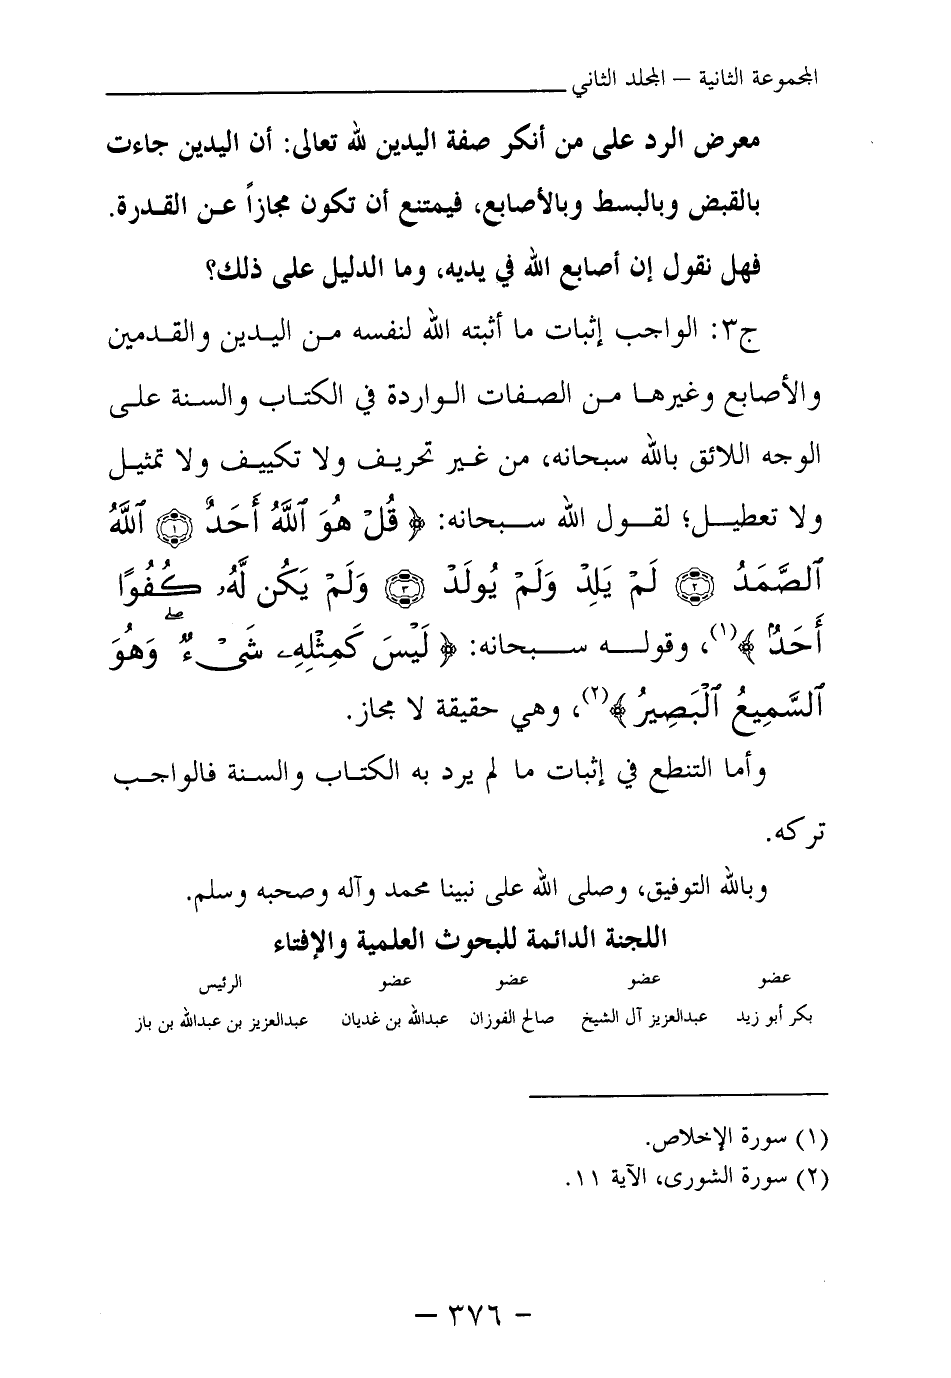 المجموعة الثانية – المجلد الثاني
معرض الرد على من أنكر صفة اليدين لله تعالى: أن اليدين جاءت
بالقبض وبالبسط وبالأصابع، فيمتنع أن تكون مجازاً عن القدرة.
فهل نقول إن أصابع الله في يديه، وما الدليل على ذلك؟
ج٣: الواجب إثبات ما أثبته الله لنفسه من اليدين والقدمين
والأصابع وغيرها من الصفات الواردة في الكتاب والسنة على
الوجه اللائق بالله سبحانه، من غير تحريف ولا تكييف ولا تمثيل
ولا تعطيل؛ لقول الله سبحانه: ﴿ قُلْ هُوَ ٱللَّهُ أَحَدٌ ۝١ ٱللَّهُ
ٱلصَّمَدُ ۝٢ لَمْ يَلِدْ وَلَمْ يُولَدْ ۝٣ وَلَمْ يَكُن لَّهُۥ كُفُوًا
أَحَدٌۢ ﴾(١)، وقوله سبحانه: ﴿ لَيْسَ كَمِثْلِهِۦ شَىْءٌ ۖ وَهُوَ
ٱلسَّمِيعُ ٱلْبَصِيرُ ﴾(٢)، وهي حقيقة لا مجاز.
وأما التنطع في إثبات ما لم يرد به الكتاب والسنة فالواجب
تركه.
وبالله التوفيق، وصلى الله على نبينا محمد وآله وصحبه وسلم.
اللجنة الدائمة للبحوث العلمية والإفتاء
عضو عضو عضو عضو الرئيس
بكر أبو زيد عبدالعزيز آل الشيخ صالح الفوزان عبدالله بن غديان عبدالعزيز بن عبدالله بن باز
(١) سورة الإخلاص.
(٢) سورة الشورى، الآية ١١.
– ٣٧٦ –